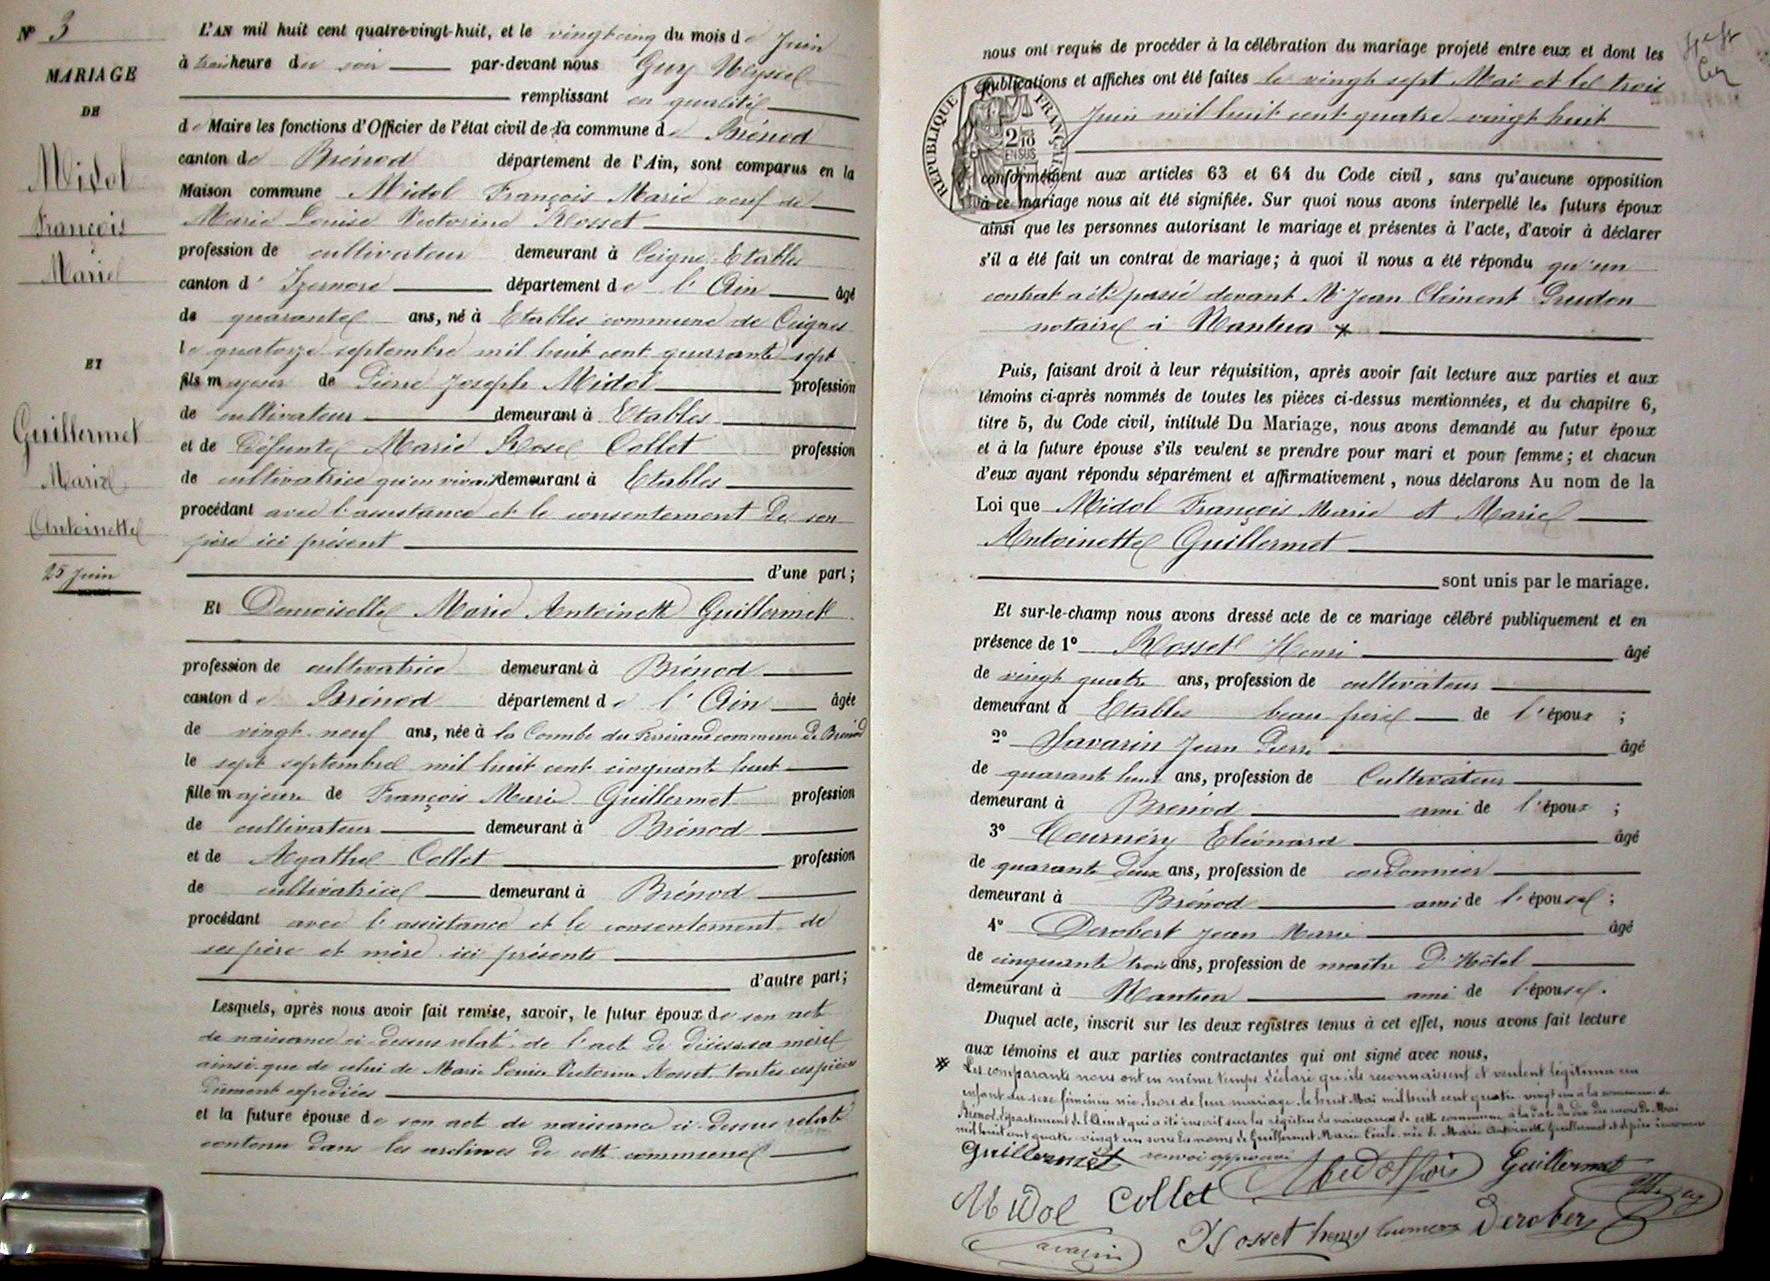 N° 3
MARIAGE
DE
Midol
François
Marie
ET
Guillermet
Marie
Antoinette
25 Juin
L'AN mil huit cent quatre-vingt-huit, et le vingt cinq du mois de Juin
à trois heure du soir par-devant nous Guy
remplissant en qualité
de Maire les fonctions d'Officier de l'état civil de la commune de Brénod
canton de Brénod département de l'Ain, sont comparus en la
Maison commune Midol François Marie veuf de
Marie Louise Victorine Rosset
profession de cultivateur demeurant à Ceignes Etables
canton d' Izernore département de l'Ain âgé
de quarante ans, né à Etables commune de Ceignes
le quatorze septembre mil huit cent quarante sept
fils majeur de Pierre Joseph Midol profession
de cultivateur demeurant à Etables
et de Défunte Marie Rose Collet profession
de cultivatrice qu'en vivant demeurant à Etables
procédant avec l'assistance et le consentement de son
père ici présent
d'une part;
Et Demoiselle Marie Antoinette Guillermet
profession de cultivatrice demeurant à Brénod
canton de Brénod département de l'Ain âgée
de vingt-neuf ans, née à la Combe du commune de Brénod
le sept septembre mil huit cent cinquante huit
fille majeure de François Marie Guillermet profession
de cultivateur demeurant à Brénod
et de Agathe Collet profession
de cultivatrice demeurant à Brénod
procédant avec l'assistance et le consentement de
ses père et mère ici présents
d'autre part;
Lesquels, après nous avoir fait remise, savoir, le futur époux de son acte
de naissance ci-dessus relaté de l'acte de décès de sa mère
ainsi que de celui de Marie Louise Victorine Rosset toutes ces pièces
dûment expédiées
et la future épouse de son acte de naissance ci-dessus relaté
contenu dans les archives de cette commune
nous ont requis de procéder à la célébration du mariage projeté entre eux et dont les
publications et affiches ont été faites le vingt sept Mai et le trois
Juin mil huit cent quatre-vingt huit
RÉPUBLIQUE FRANÇAISE
2/10 EN SUS
conformément aux articles 63 et 64 du Code civil, sans qu'aucune opposition
à ce mariage nous ait été signifiée. Sur quoi nous avons interpellé les futurs époux
ainsi que les personnes autorisant le mariage et présentes à l'acte, d'avoir à déclarer
s'il a été fait un contrat de mariage; à quoi il nous a été répondu qu'un
contrat a été passé devant Me Jean Clément Prudon
notaire à Nantua *
Puis, faisant droit à leur réquisition, après avoir fait lecture aux parties et aux
témoins ci-après nommés de toutes les pièces ci-dessus mentionnées, et du chapitre 6,
titre 5, du Code civil, intitulé Du Mariage, nous avons demandé au futur époux
et à la future épouse s'ils veulent se prendre pour mari et pour femme; et chacun
d'eux ayant répondu séparément et affirmativement, nous déclarons Au nom de la
Loi que Midol François Marie et Marie
Antoinette Guillermet
sont unis par le mariage.
Et sur-le-champ nous avons dressé acte de ce mariage célébré publiquement et en
présence de 1° Rosset Henri âgé
de vingt quatre ans, profession de cultivateur
demeurant à Etables beau frère de l'époux ;
2° Savarin Jean Pierre âgé
de quarante huit ans, profession de Cultivateur
demeurant à Brénod ami de l'époux ;
3° Tournéry Eléonard âgé
de quarante deux ans, profession de cordonnier
demeurant à Brénod ami de l'épouse ;
4° Derobert Jean Marie âgé
de cinquante trois ans, profession de maître d'Hôtel
demeurant à Nantua ami de l'épouse.
Duquel acte, inscrit sur les deux registres tenus à cet effet, nous avons fait lecture
aux témoins et aux parties contractantes qui ont signé avec nous,
* Les comparants nous ont en même temps déclaré qu'ils reconnaissent et veulent légitimer un
enfant du sexe féminin née hors de leur mariage le huit Mai mil huit cent quatre-vingt un à la commune de
Brénod, département de l'Ain et qui a été inscrit sur les registres de naissance de cette commune à la date du dix du mois de Mai
mil huit cent quatre-vingt un sous les noms de Guillermet Marie Cécile née de Marie Antoinette Guillermet et de père inconnu
renvoi approuvé
Guillermet Midol fçois Guillermet
Midol Collet
Savarin Rosset henry Derober